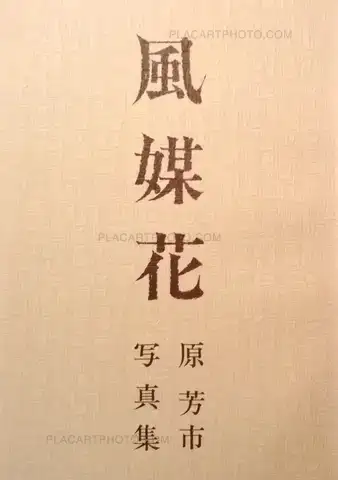 風媒花
原芳市
写真集
PLACARTPHOTO.COM
PLACARTPHOTO.COM
PLACARTPHOTO.COM